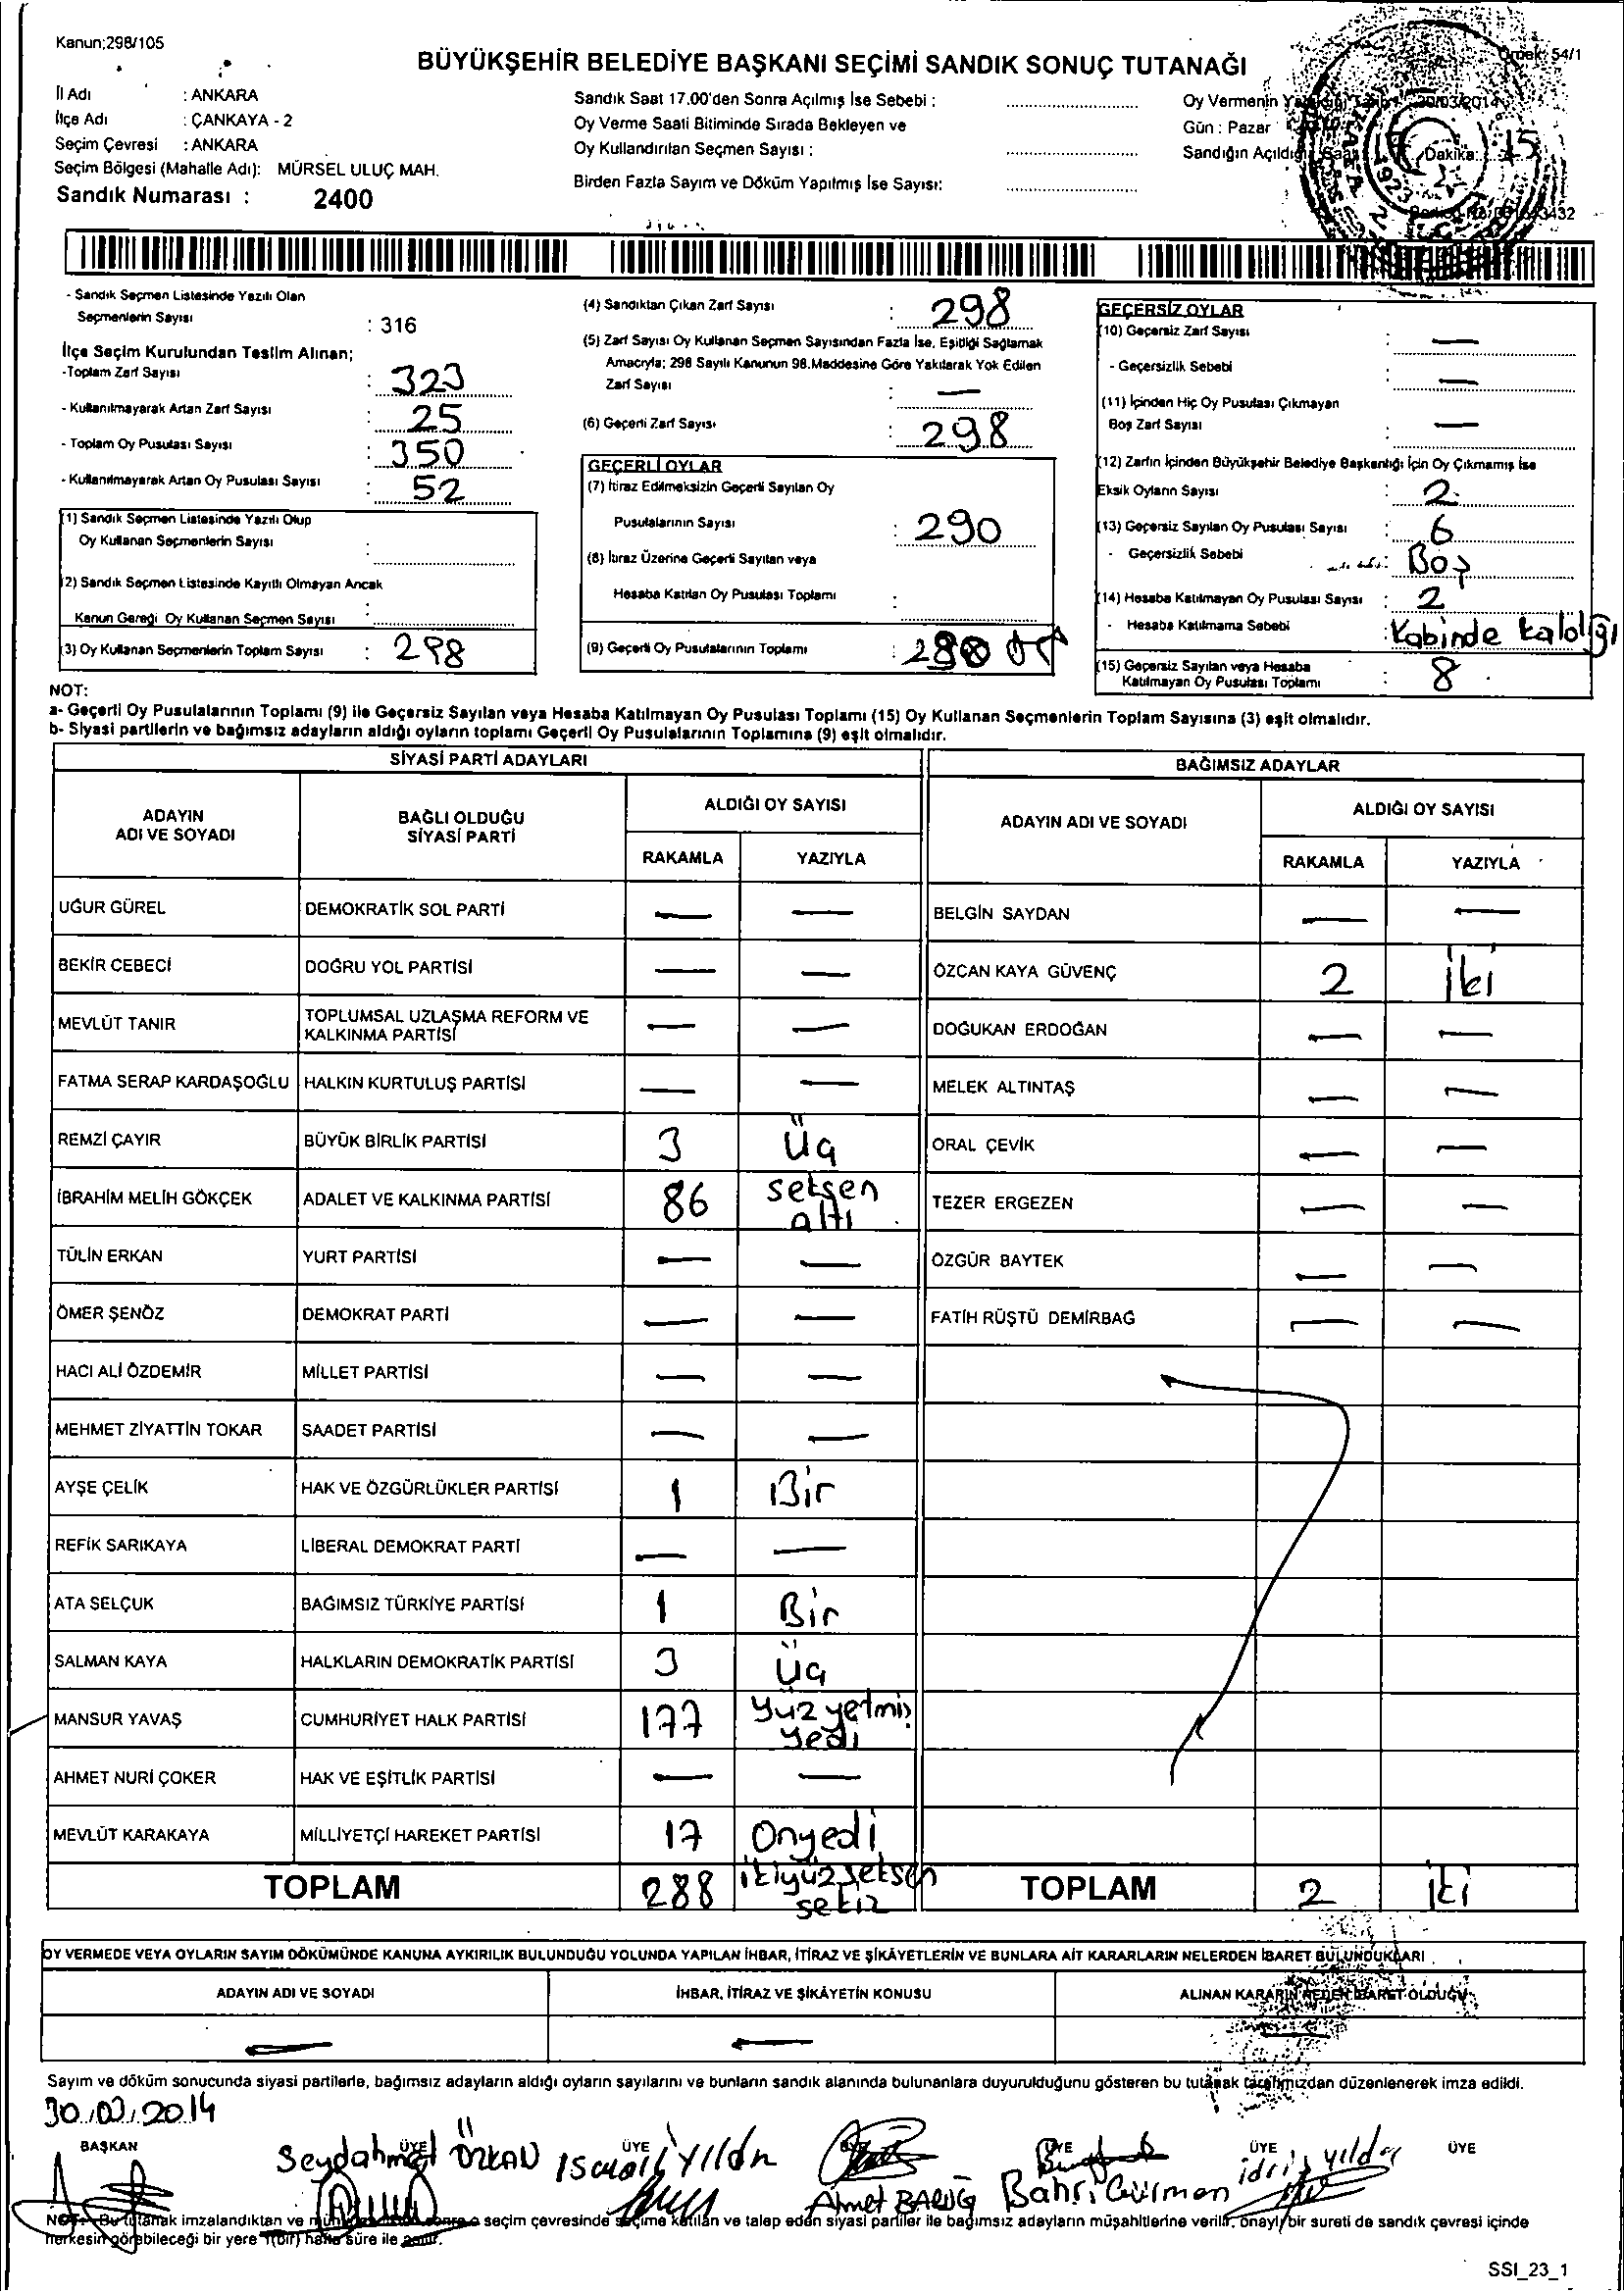 Kanun;298/105
BÜYÜKŞEHİR BELEDİYE BAŞKANI SEÇİMİ SANDIK SONUÇ TUTANAĞI
Örnek: 54/1
İl Adı : ANKARA
İlçe Adı : ÇANKAYA - 2
Seçim Çevresi : ANKARA
Seçim Bölgesi (Mahalle Adı): MÜRSEL ULUÇ MAH.
Sandık Numarası : 2400
Sandık Saat 17.00'den Sonra Açılmış İse Sebebi :
Oy Verme Saati Bitiminde Sırada Bekleyen ve
Oy Kullandırılan Seçmen Sayısı :
Birden Fazla Sayım ve Döküm Yapılmış İse Sayısı:
Oy Vermenin 30/03/2014
Gün : Pazar
Sandığın Açıldığı Saat Dakika: 15
- Sandık Seçmen Listesinde Yazılı Olan
Seçmenlerin Sayısı : 316
İlçe Seçim Kurulundan Teslim Alınan;
-Toplam Zarf Sayısı : 323
- Kullanılmayarak Artan Zarf Sayısı : 25
- Toplam Oy Pusulası Sayısı : 350
- Kullanılmayarak Artan Oy Pusulası Sayısı : 52
(1) Sandık Seçmen Listesinde Yazılı Olup
Oy Kullanan Seçmenlerin Sayısı :
(2) Sandık Seçmen Listesinde Kayıtlı Olmayan Ancak
Kanun Gereği Oy Kullanan Seçmen Sayısı :
(3) Oy Kullanan Seçmenlerin Toplam Sayısı : 298
(4) Sandıktan Çıkan Zarf Sayısı : 298
(5) Zarf Sayısı Oy Kullanan Seçmen Sayısından Fazla İse, Eşitliği Sağlamak
Amacıyla; 298 Sayılı Kanunun 98.Maddesine Göre Yakılarak Yok Edilen
Zarf Sayısı : —
(6) Geçerli Zarf Sayısı : 298
GEÇERLİ OYLAR
(7) İtiraz Edilmeksizin Geçerli Sayılan Oy
Pusulalarının Sayısı : 290
(8) İtiraz Üzerine Geçerli Sayılan veya
Hesaba Katılan Oy Pusulası Toplamı :
(9) Geçerli Oy Pusulalarının Toplamı :
GEÇERSİZ OYLAR
(10) Geçersiz Zarf Sayısı : —
- Geçersizlik Sebebi : —
(11) İçinden Hiç Oy Pusulası Çıkmayan
Boş Zarf Sayısı : —
(12) Zarfın İçinden Büyükşehir Belediye Başkanlığı İçin Oy Çıkmamış İse
Eksik Oyların Sayısı : 2
(13) Geçersiz Sayılan Oy Pusulası Sayısı : 6
- Geçersizlik Sebebi : Boş
(14) Hesaba Katılmayan Oy Pusulası Sayısı : 2
- Hesaba Katılmama Sebebi : Kabinde kaldığı
(15) Geçersiz Sayılan veya Hesaba
Katılmayan Oy Pusulası Toplamı : 8
NOT:
a- Geçerli Oy Pusulalarının Toplamı (9) ile Geçersiz Sayılan veya Hesaba Katılmayan Oy Pusulası Toplamı (15) Oy Kullanan Seçmenlerin Toplam Sayısına (3) eşit olmalıdır.
b- Siyasi partilerin ve bağımsız adayların aldığı oyların toplamı Geçerli Oy Pusulalarının Toplamına (9) eşit olmalıdır.
SİYASİ PARTİ ADAYLARI
ADAYIN ADI VE SOYADI BAĞLI OLDUĞU SİYASİ PARTİ ALDIĞI OY SAYISI
RAKAMLA YAZIYLA
UĞUR GÜREL DEMOKRATİK SOL PARTİ — —
BEKİR CEBECİ DOĞRU YOL PARTİSİ — —
MEVLÜT TANIR TOPLUMSAL UZLAŞMA REFORM VE KALKINMA PARTİSİ — —
FATMA SERAP KARDAŞOĞLU HALKIN KURTULUŞ PARTİSİ — —
REMZİ ÇAYIR BÜYÜK BİRLİK PARTİSİ 3 Üç
İBRAHİM MELİH GÖKÇEK ADALET VE KALKINMA PARTİSİ 86 seksen altı
TÜLİN ERKAN YURT PARTİSİ — —
ÖMER ŞENÖZ DEMOKRAT PARTİ — —
HACI ALİ ÖZDEMİR MİLLET PARTİSİ — —
MEHMET ZİYATTİN TOKAR SAADET PARTİSİ — —
AYŞE ÇELİK HAK VE ÖZGÜRLÜKLER PARTİSİ 1 Bir
REFİK SARIKAYA LİBERAL DEMOKRAT PARTİ — —
ATA SELÇUK BAĞIMSIZ TÜRKİYE PARTİSİ 1 Bir
SALMAN KAYA HALKLARIN DEMOKRATİK PARTİSİ 3 Üç
MANSUR YAVAŞ CUMHURİYET HALK PARTİSİ 177 Yüz yetmiş yedi
AHMET NURİ ÇOKER HAK VE EŞİTLİK PARTİSİ — —
MEVLÜT KARAKAYA MİLLİYETÇİ HAREKET PARTİSİ 17 Onyedi
TOPLAM 288 ikiyüzseksen sekiz
BAĞIMSIZ ADAYLAR
ADAYIN ADI VE SOYADI ALDIĞI OY SAYISI
RAKAMLA YAZIYLA
BELGİN SAYDAN — —
ÖZCAN KAYA GÜVENÇ 2 iki
DOĞUKAN ERDOĞAN — —
MELEK ALTINTAŞ — —
ORAL ÇEVİK — —
TEZER ERGEZEN — —
ÖZGÜR BAYTEK — —
FATİH RÜŞTÜ DEMİRBAĞ — —
TOPLAM 2 iki
OY VERMEDE VEYA OYLARIN SAYIM DÖKÜMÜNDE KANUNA AYKIRILIK BULUNDUĞU YOLUNDA YAPILAN İHBAR, İTİRAZ VE ŞİKÂYETLERİN VE BUNLARA AİT KARARLARIN NELERDEN İBARET BULUNDUKLARI
ADAYIN ADI VE SOYADI İHBAR, İTİRAZ VE ŞİKÂYETİN KONUSU ALINAN KARARIN NEDEN İBARET OLDUĞU
— — —
Sayım ve döküm sonucunda siyasi partilerle, bağımsız adayların aldığı oyların sayılarını ve bunların sandık alanında bulunanlara duyurulduğunu gösteren bu tutanak tarafımızdan düzenlenerek imza edildi.
30.03.2014
BAŞKAN ÜYE ÜYE ÜYE ÜYE ÜYE ÜYE
Seydahmet ÖZKAN İsmail Yıldn Ahmet BALIĞ Bahri Gürman idris yıldız
NOT: Bu tutanak imzalandıktan ve sonra seçim çevresinde seçime katılan ve talep eden siyasi partiler ile bağımsız adayların müşahitlerine verilir, onaylı bir sureti de sandık çevresi içinde
herkesin görebileceği bir yere 1(bir) hafta süre ile asılır.
SSI_23_1